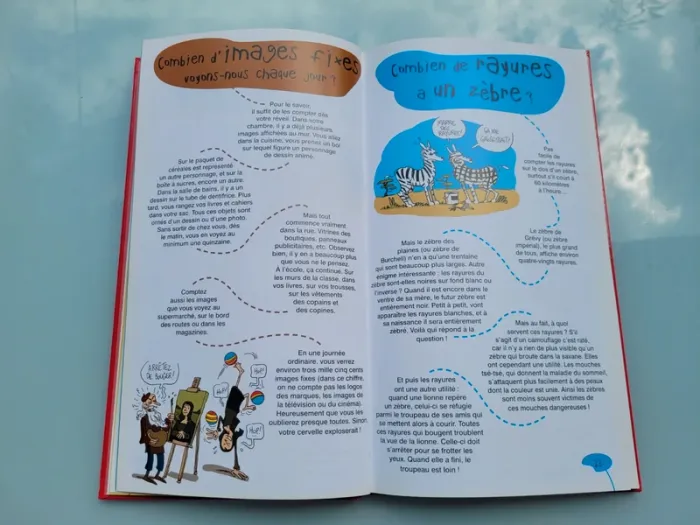 Combien d'images fixes
voyons-nous chaque jour ?
Pour le savoir,
il suffit de les compter dès
votre réveil. Dans votre
chambre, il y a déjà plusieurs
images affichées au mur. Vous allez
dans la cuisine, vous prenez un bol
sur lequel figure un personnage
de dessin animé.
Sur le paquet de
céréales est représenté
un autre personnage, et sur la
boîte à sucres, encore un autre.
Dans la salle de bains, il y a un
dessin sur le tube de dentifrice. Plus
tard, vous rangez vos livres et cahiers
dans votre sac. Tous ces objets sont
ornés d'un dessin ou d'une photo.
Sans sortir de chez vous, dès
le matin, vous en voyez au
minimum une quinzaine.
Mais tout
commence vraiment
dans la rue. Vitrines des
boutiques, panneaux
publicitaires, etc. Observez
bien, il y en a beaucoup plus
que vous ne le pensez.
À l'école, ça continue. Sur
les murs de la classe, dans
vos livres, sur vos trousses,
sur les vêtements
des copains et
des copines.
Comptez
aussi les images
que vous voyez au
supermarché, sur le bord
des routes ou dans les
magazines.
En une journée
ordinaire, vous verrez
environ trois mille cinq cents
images fixes (dans ce chiffre,
on ne compte pas les logos
des marques, les images de
la télévision ou du cinéma).
Heureusement que vous les
oublierez presque toutes. Sinon
votre cervelle exploserait !
ARRÊTEZ
DE BOUGER!
HOP!
HOP!
HOP!
Combien de rayures
a un zèbre ?
Pas
facile de
compter les rayures
sur le dos d'un zèbre,
surtout s'il court à
60 kilomètres
à l'heure...
Le zèbre de
Grévy (ou zèbre
impérial), le plus grand
de tous, affiche environ
quatre-vingts rayures.
Mais le zèbre des
plaines (ou zèbre de
Burchell) n'en a qu'une trentaine
qui sont beaucoup plus larges. Autre
énigme intéressante : les rayures du
zèbre sont-elles noires sur fond blanc ou
l'inverse ? Quand il est encore dans le
ventre de sa mère, le futur zèbre est
entièrement noir. Petit à petit, vont
apparaître les rayures blanches, et à
sa naissance il sera entièrement
zébré. Voilà qui répond à la
question !
Mais au fait, à quoi
servent ces rayures ? S'il
s'agit d'un camouflage c'est raté,
car il n'y a rien de plus visible qu'un
zèbre qui broute dans la savane. Elles
ont cependant une utilité. Les mouches
tsé-tsé, qui donnent la maladie du sommeil,
s'attaquent plus facilement à des peaux
dont la couleur est unie. Ainsi les zèbres
sont moins souvent victimes de
ces mouches dangereuses !
Et puis les rayures
ont une autre utilité :
quand une lionne repère
un zèbre, celui-ci se réfugie
parmi le troupeau de ses amis qui
se mettent alors à courir. Toutes
ces rayures qui bougent troublent
la vue de la lionne. Celle-ci doit
s'arrêter pour se frotter les
yeux. Quand elle a fini, le
troupeau est loin !